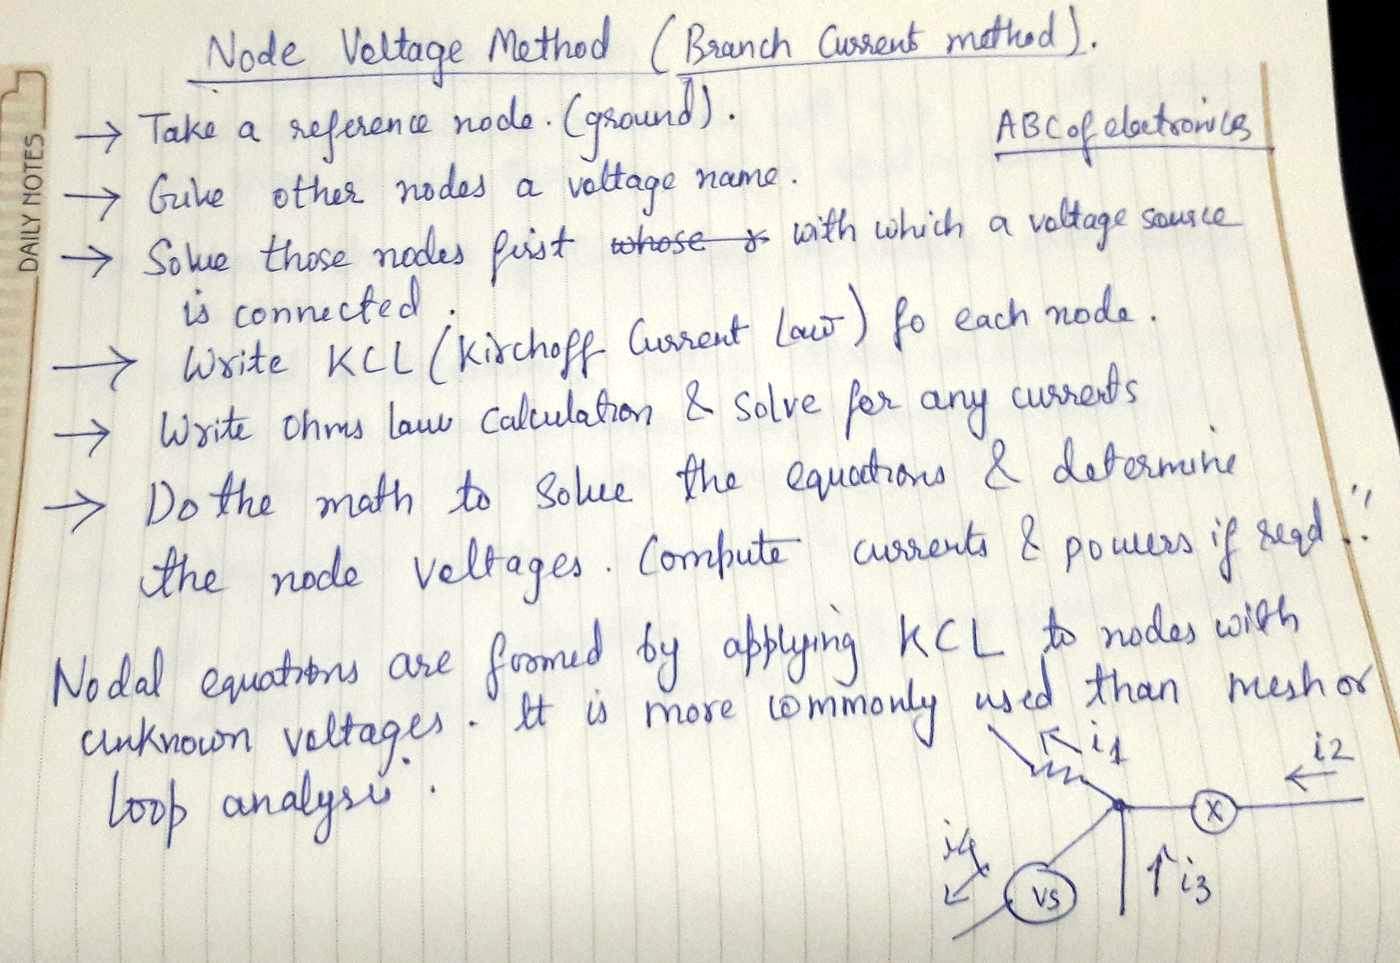 Node Voltage Method (Branch Current method).
→ Take a reference node. (ground).
ABC of electronics
→ Give other nodes a voltage name.
→ Solve those nodes first whose with which a voltage source
is connected.
→ Write KCL (Kirchoff Current Law) fo each node.
→ Write Ohms law calculation & solve for any currents
→ Do the math to solve the equations & determine
the node voltages. Compute currents & powers if reqd!!
Nodal equations are formed by applying KCL to nodes with
unknown voltages. It is more commonly used than mesh or
loop analysis.
i1
i2
X
i4
VS
i3
DAILY NOTES